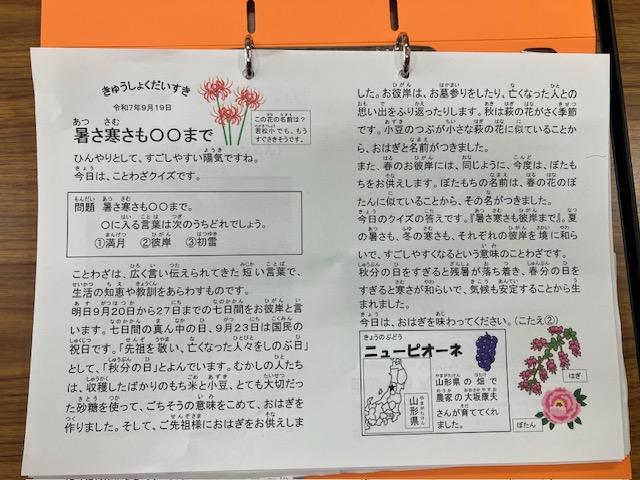 きゅうしょくだいすき
令和7年9月19日
暑さ寒さも〇〇まで
この花の名前は？
若松小でも、もう
すぐさきそうです。
ひんやりとして、すごしやすい陽気ですね。
今日は、ことわざクイズです。
問題 暑さ寒さも〇〇まで
〇に入る言葉は次のうちどれでしょう。
①満月 ②彼岸 ③初雪
ことわざは、広く言い伝えられてきた短い言葉で、
生活の知恵や教訓をあらわすものです。
明日9月20から27日までの七日間をお彼岸と言
います。七日間の真ん中の日、9月23日は国民の
祝日です。「先祖を敬い、亡くなった人々をしのぶ日」
として、「秋分の日」とよんでいます。むかしの人たち
は、収穫したばかりのもち米と小豆、とても大切だっ
た砂糖を使って、ごちそうの意味をこめて、おはぎを
作りました。そして、ご先祖様におはぎをお供えしま
した。お彼岸は、お墓参りをしたり、亡くなった人との
思い出をふり返ったりします。秋は萩の花がさく季節
です。小豆のつぶが小さな萩の花に似ていることか
ら、おはぎと名前がつきました。
また、春のお彼岸には、同じように、今度は、ぼたも
ちをお供えします。ぼたもちの名前は、春の花のぼ
たんに似ていることから、その名がつきました。
今日のクイズの答えです。『暑さ寒さも彼岸まで』。夏
の暑さも、冬の寒さも、それぞれの彼岸を境に和ら
いで、すごしやすくなるという意味のことわざです。
秋分の日をすぎると残暑が落ち着き、春分の日を
すぎると寒さが和らいで、気候も安定することから生
まれました。
今日は、おはぎを味わってください。（こたえ②）
きょうのぶどう
ニューピオーネ
山形県
山形県の畑で
農家の大坂康夫
さんが育ててくれ
ました。
はぎ
ぼたん